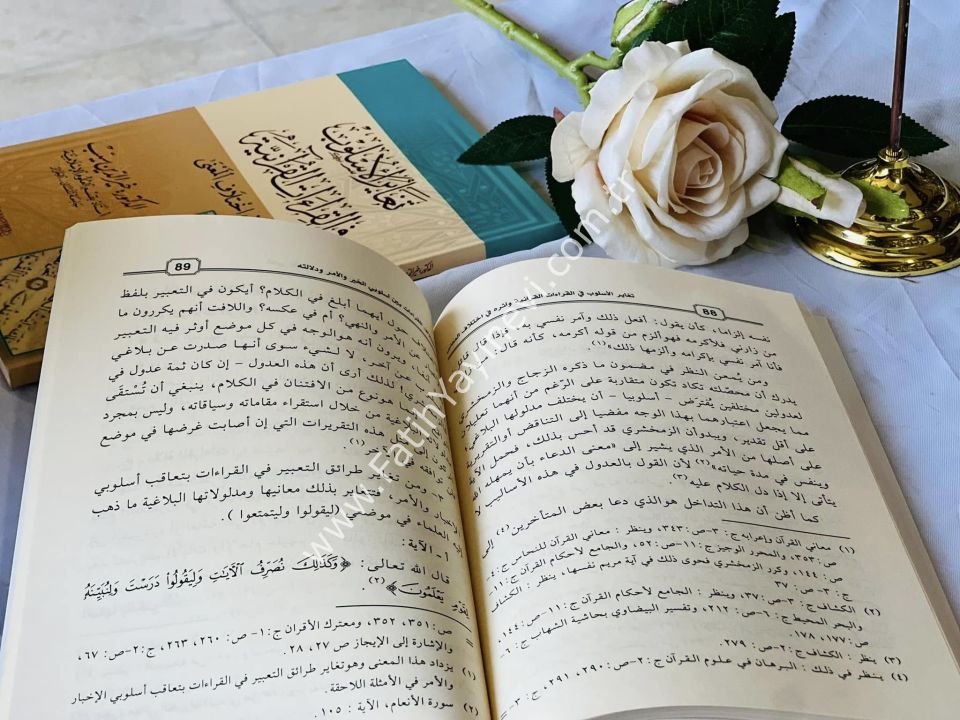 تغاير الأسلوب
في القراءات القرآنية
88
تغاير الأسلوب في القراءات القرآنية وأثره في اختلاف
نفسه إلزاما، كأن يقول: أفعل ذلك وآمر نفسي به، فإذا قال قائل
من زارني فلأكرمه فهو ألزم من قوله أكرمه، كأنه قال
فأنا آمر نفسي بإكرامه وألزمها ذلك»(١).
ومن يُمعن النظر في مضمون ما ذكره الزجاج والزمخشري
يدرك أن محصلته تكاد تكون متقاربة على الرّغم من أنهما تعليلان
لعدولين مختلفين يُفترض - أسلوبيا - أن يختلف مدلولها البلاغي
مما يجعل اعتبارهما بهذا الوجه مفضيا إلى التناقض أو التقريرية
على أقل تقدير، ويبدو أن الزمخشري قد أحس بذلك، فحمل الآية
على أصلها من الأمر الذي يشير إلى «معنى الدعاء بأن يمهله الله
وينفس في مدة حياته»(٢) لأن القول بالعدول في هذه الأساليب لا
يتأتى إلا إذا دل الكلام عليه (٣).
كما أظن أن هذا التداخل هو الذي دعا بعض المتأخرين (٤) إلى
(١) معاني القرآن وإعرابه ج: ٣-ص: ٣٤٣، وينظر: معاني القرآن للنحاس ج: ٤-
ص: ٣٥٣، والمحرر الوجيز ج: ١١-ص: ٥٢، والجامع لأحكام القرآن ج: ١١-
ص: ١٤٤، وكرر الزمخشري فحوى ذلك في آية مريم نفسها، ينظر: الكشاف
ج: ٣-ص: ٣٧
(٢) الكشاف ج: ٣-ص: ٣٧، وينظر: الجامع لأحكام القرآن ج: ١١-ص: ١٤٤،
والبحر المحيط ج: ٦-ص: ٢١٢، وتفسير البيضاوي بحاشية الشهاب ج: ٦-
ص: ١٧٧، ١٧٨.
(٣) ينظر: الكشاف ج: ٢-ص: ٢٧٩.
(٤) ينظر في ذلك: البرهان في علوم القرآن ج: ٢-ص: ٢٩٠، ٢٩١، ج: ٣- =
89
بين أسلوبي الخبر والأمر ودلالته
حول أيهما أبلغ في الكلام؟ أيكون في التعبير بلفظ
عن الأمر والنهي؟ أم في عكسه؟ واللافت أنهم يكررون ما
ويرون أنه هو الوجه في كل موضع أوثر فيه التعبير
عن آخر، لا لشيء سوى أنها صدرت عن بلاغي
لذلك أرى أن هذه العدول - إن كان ثمة عدول في
هو نوع من الافتنان في الكلام، ينبغي أن تُسْتَقَى
من خلال استقراء مقاماته وسياقاته، وليس بمجرد
هذه التقريرات التي إن أصابت غرضها في موضع
توافقه في (١).
٣- ومن تغاير طرائق التعبير في القراءات بتعاقب أسلوبي
الإخبار والأمر، بذلك معانيها ومدلولاتها البلاغية ما ذهب
إليه العلماء في موضعي (ليقولوا وليتمتعوا).
أ- الآية:
قال الله تعالى: ﴿وَكَذَٰلِكَ نُصَرِّفُ الْآيَاتِ وَلِيَقُولُوا دَرَسْتَ وَلِنُبَيِّنَهُ
لِقَوْمٍ يَعْلَمُونَ﴾ (٢).
= ص: ٣٥١، ٣٥٢، ومعترك الأقران ج: ١-ص: ٢٦٠، ٢٦٣، ج: ٢-ص: ٦٧،
والإشارة إلى الإيجاز ص ٢٧، ٢٨.
(١) يزداد هذا المعنى وهو تغاير طرائق التعبير في القراءات بتعاقب أسلوبي الإخبار
والأمر في الأمثلة اللاحقة.
(٢) سورة الأنعام، الآية: ١٠٥.
www.FatihYayinevi.com.tr